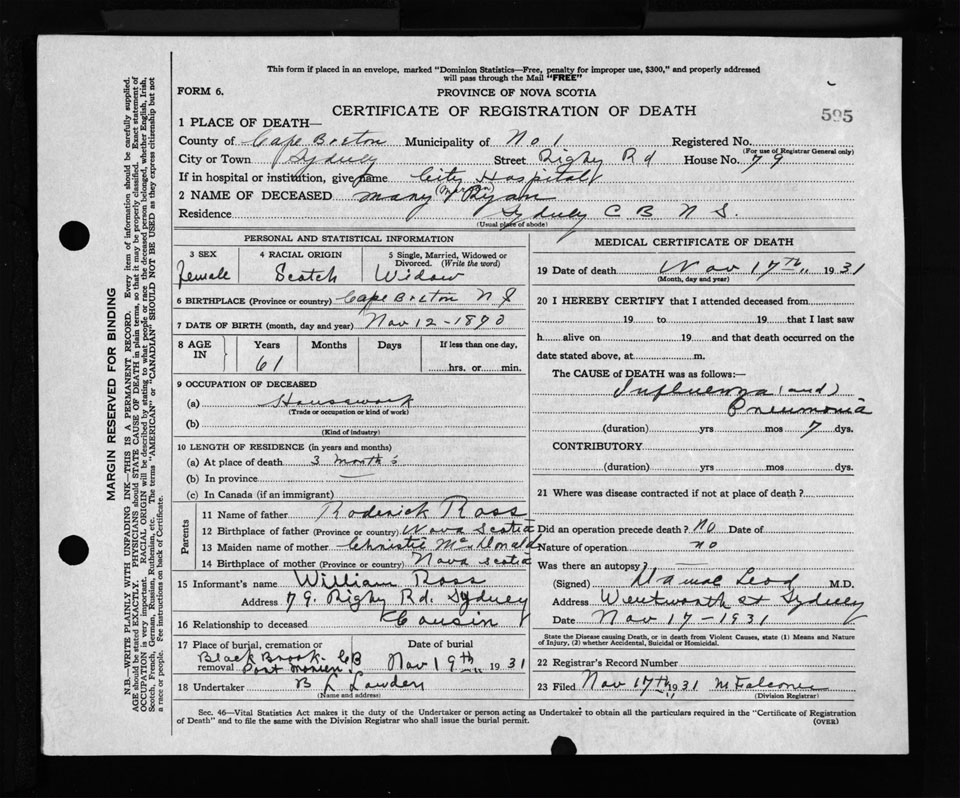 This form if placed in an envelope, marked "Dominion Statistics—Free, penalty for improper use, $300," and properly addressed
will pass through the Mail "FREE"
FORM 6. PROVINCE OF NOVA SCOTIA
CERTIFICATE OF REGISTRATION OF DEATH
595
1 PLACE OF DEATH—
County of Cape Breton Municipality of No 1 Registered No.
(For use of Registrar General only)
City or Town Sydney Street Rigby Rd House No. 79
If in hospital or institution, give name City Hospital
2 NAME OF DECEASED Mary Ryan
Residence Sydney C B N S.
(Usual place of abode)
PERSONAL AND STATISTICAL INFORMATION
3 SEX 4 RACIAL ORIGIN 5 Single, Married, Widowed or Divorced. (Write the word)
female Scotch Widow
6 BIRTHPLACE (Province or country) Cape Breton N S
7 DATE OF BIRTH (month, day and year) Nov 12-1870
8 AGE IN Years Months Days If less than one day,
61 hrs. or min.
9 OCCUPATION OF DECEASED
(a) Housework
(Trade or occupation or kind of work)
(b)
(Kind of industry)
10 LENGTH OF RESIDENCE (in years and months)
(a) At place of death 3 months
(b) In province —
(c) In Canada (if an immigrant)
Parents
11 Name of father Roderick Ross
12 Birthplace of father (Province or country) Nova Scotia
13 Maiden name of mother Christie McDonald
14 Birthplace of mother (Province or country) Nova Scotia
15 Informant's name William Ross
Address 79. Rigby Rd. Sydney
16 Relationship to deceased Cousin
17 Place of burial, cremation or removal Date of burial
Black Brook CB
Port Morien Nov 19th 1931
18 Undertaker B L Lowden
(Name and address)
MEDICAL CERTIFICATE OF DEATH
19 Date of death Nov 17th 1931
(Month, day and year)
20 I HEREBY CERTIFY that I attended deceased from
19 to 19 that I last saw
h alive on 19 and that death occurred on the
date stated above, at m.
The CAUSE of DEATH was as follows:—
Influenza (and)
Pneumonia
(duration) yrs mos 7 dys.
CONTRIBUTORY
(duration) yrs mos dys.
21 Where was disease contracted if not at place of death?
Did an operation precede death? No Date of
Nature of operation no
Was there an autopsy? —
(Signed) M.D.
Address Wentworth st Sydney
Date Nov 17-1931
State the Disease causing Death, or in death from Violent Causes, state (1) Means and Nature
of Injury, (2) whether Accidental, Suicidal or Homicidal.
22 Registrar's Record Number
23 Filed Nov 17th 1931
(Division Registrar)
Sec. 46—Vital Statistics Act makes it the duty of the Undertaker or person acting as Undertaker to obtain all the particulars required in the "Certificate of Registration
of Death" and to file the same with the Division Registrar who shall issue the burial permit. (OVER)
MARGIN RESERVED FOR BINDING
N.B.—WRITE PLAINLY WITH UNFADING INK—THIS IS A PERMANENT RECORD. Every item of information should be carefully supplied.
AGE should be stated EXACTLY. PHYSICIANS should STATE CAUSE OF DEATH in plain terms, so that it may be properly classified. Exact statement of
OCCUPATION is very important. RACIAL ORIGIN will be described by stating to what people or race the deceased person belonged, whether English, Irish,
Scotch, French, German, Russian, Ruthenian, etc. The terms "AMERICAN" or "CANADIAN" SHOULD NOT BE USED as they express citizenship but not
a race or people. See instructions on back of Certificate.